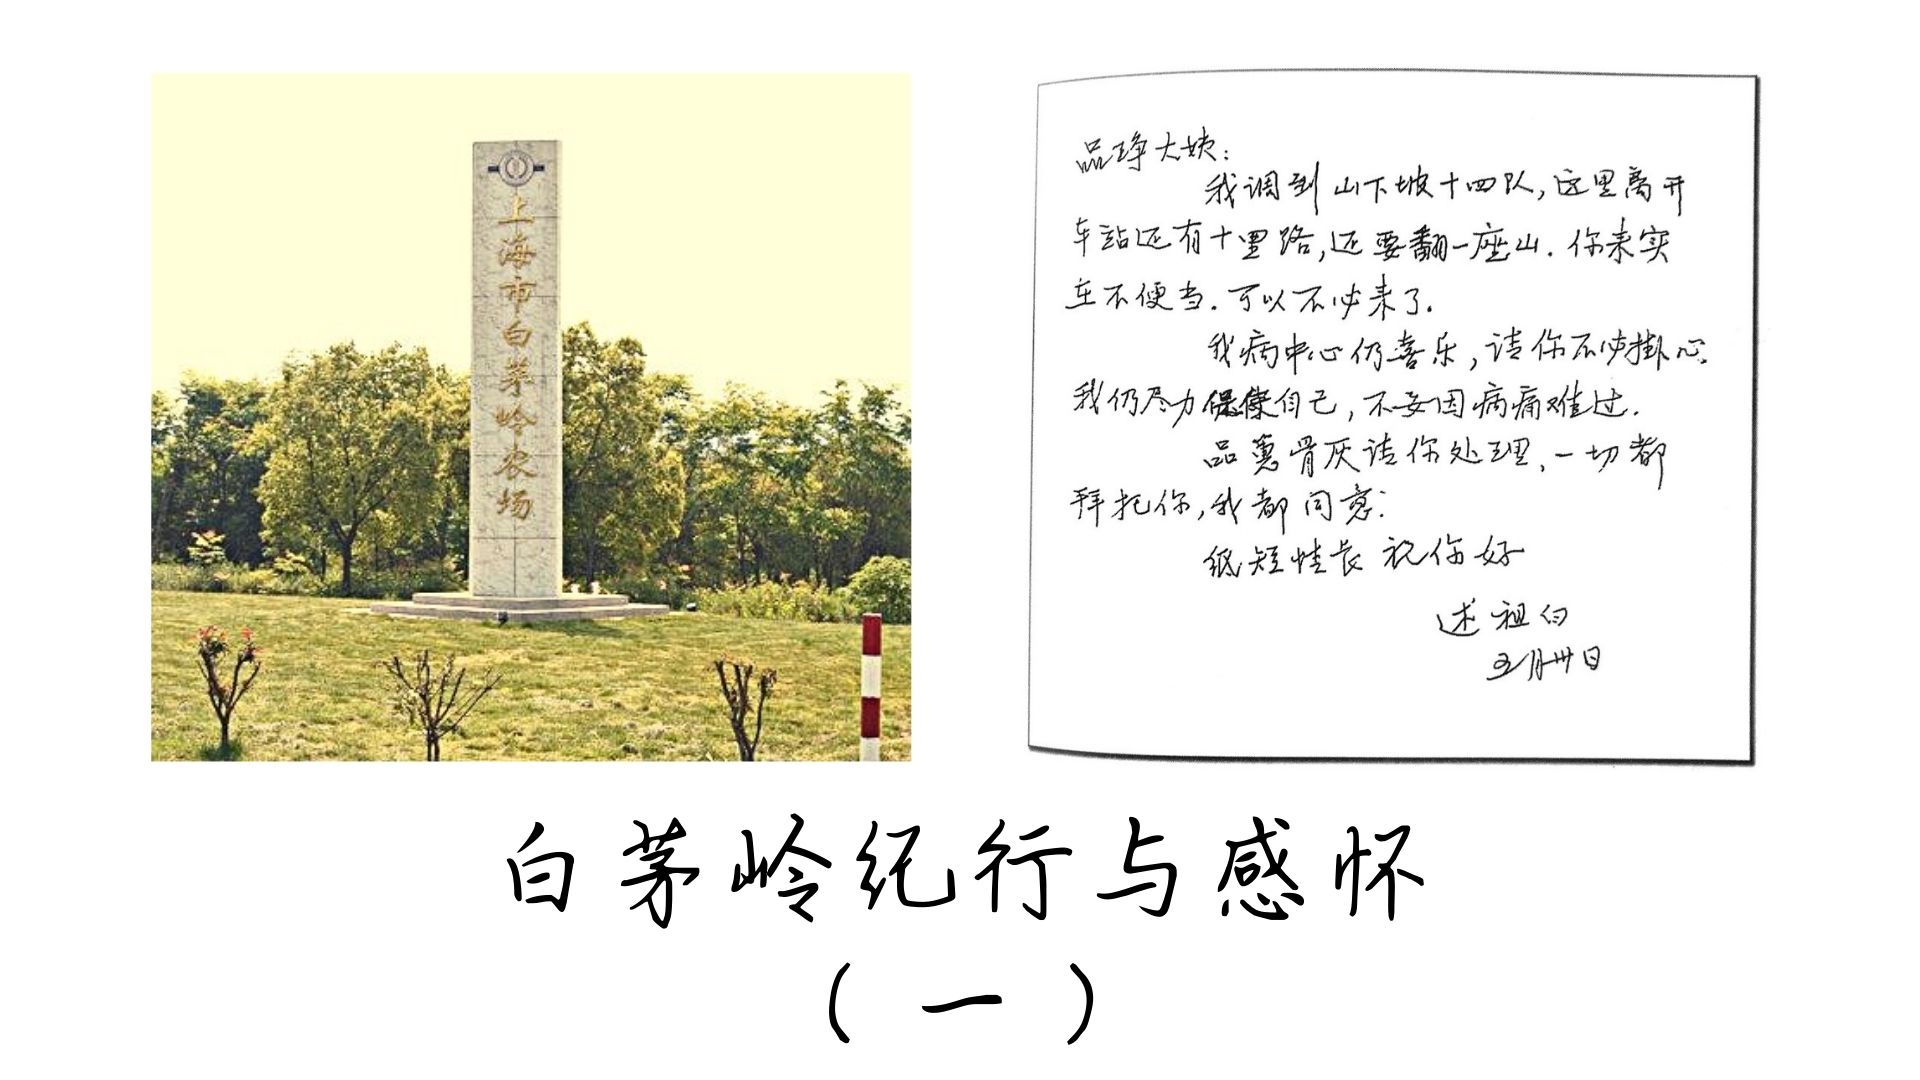 上海市白茅岭农场
品琤大姨:
我调到山下坡十四队,这里离开
车站还有十里路,还要翻一座山.你来实
在不便当.可以不必来了.
我病中心仍喜乐,请你不必掛心.
我仍尽力保养自己,不妄因病痛难过.
品蕙骨灰请你处理、一切都
拜托你,我都同意:
纸短情长 祝你好
述祖 白
五月卅日
白茅岭纪行与感怀
(一)